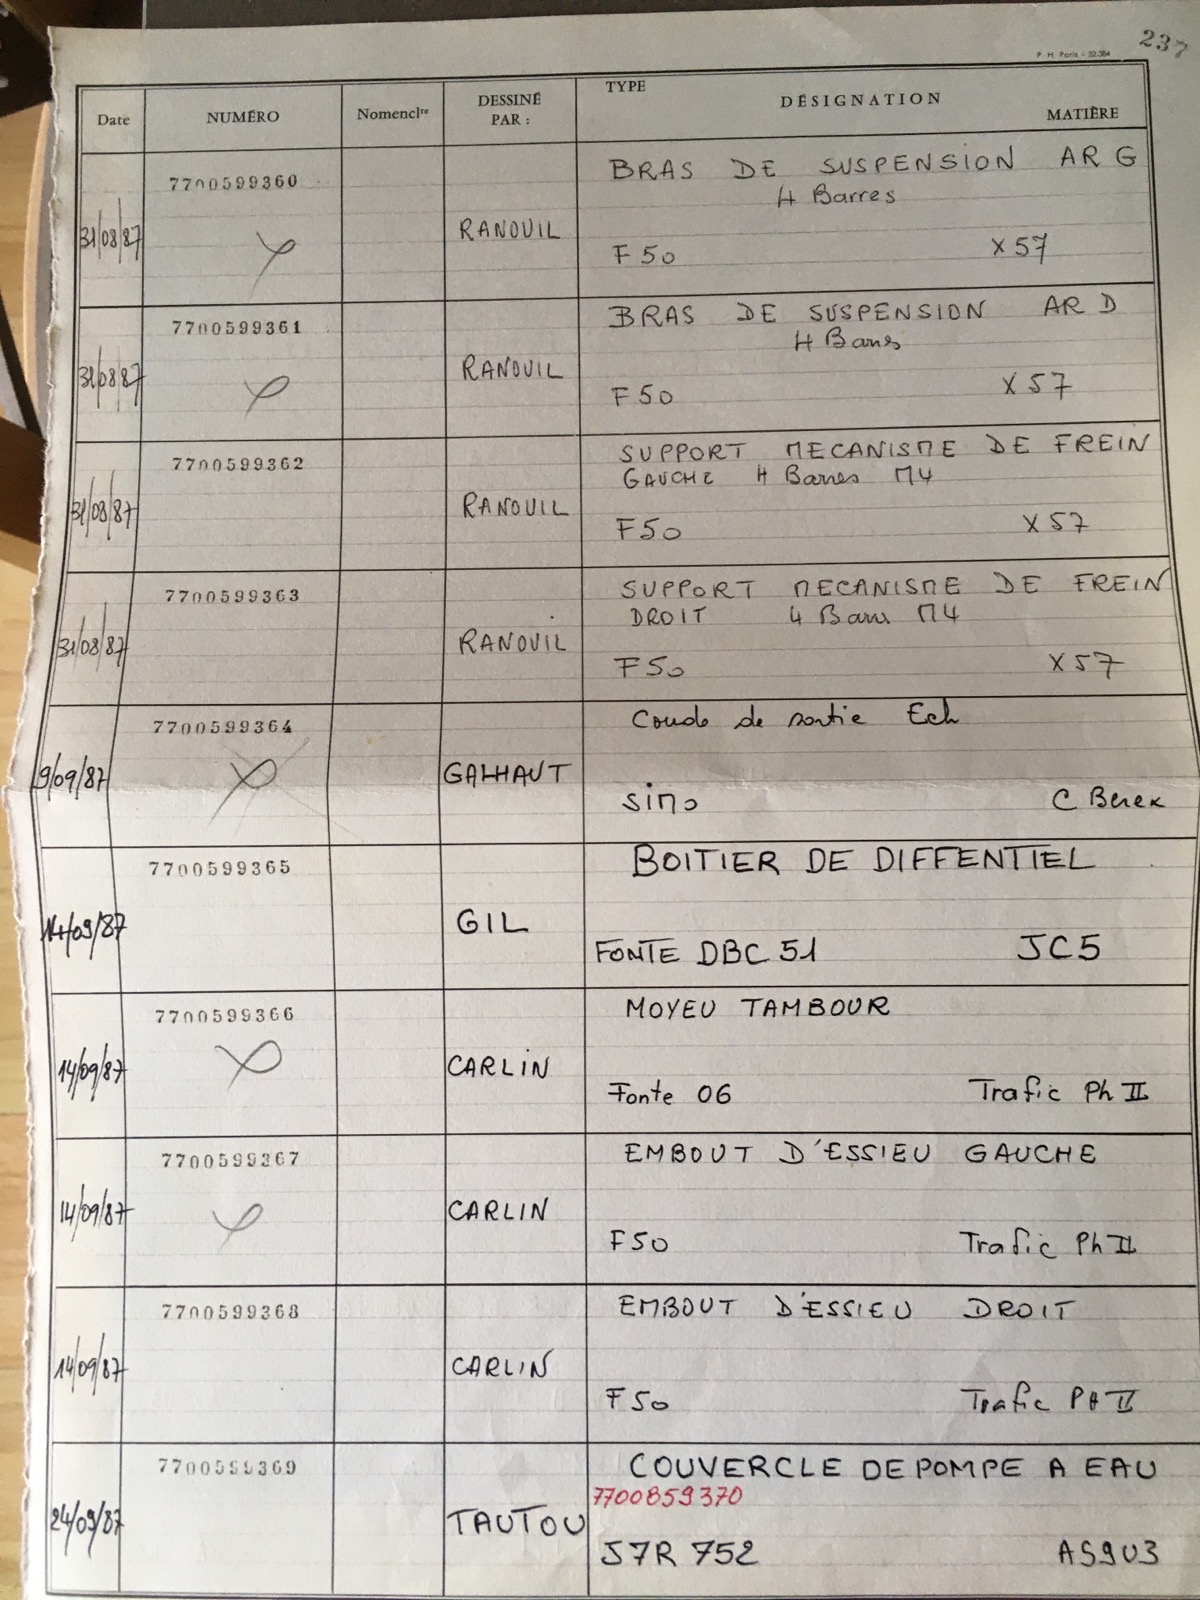 237
P. H. Paris - 52.384
Date NUMÉRO Nomencl^re DESSINÉ PAR : TYPE DÉSIGNATION MATIÈRE
7700599360 BRAS DE SUSPENSION AR G
4 Barres
31/08/87 RANOUIL
F50 X57
7700599361 BRAS DE SUSPENSION AR D
4 Barres
31/08/87 RANOUIL
F50 X57
7700599362 SUPPORT MECANISME DE FREIN
GAUCHE 4 Barres M4
31/08/87 RANOUIL
F50 X57
7700599363 SUPPORT MECANISME DE FREIN
DROIT 4 Barres M4
31/08/87 RANOUIL
F50 X57
7700599364 Coude de sortie Ech
9/09/87 GALHAUT
SiMo C Berex
7700599365 BOITIER DE DIFFENTIEL
14/09/87 GIL
FONTE DBC 51 JC5
7700599366 MOYEU TAMBOUR
14/09/87 CARLIN
Fonte 06 Trafic Ph II
7700599367 EMBOUT D'ESSIEU GAUCHE
14/09/87 CARLIN
F50 Trafic Ph II
7700599368 EMBOUT D'ESSIEU DROIT
14/09/87 CARLIN
F50 Trafic PH II
7700599369 COUVERCLE DE POMPE A EAU
7700859370
24/09/87 TAUTOU
J7R 752 AS9U3